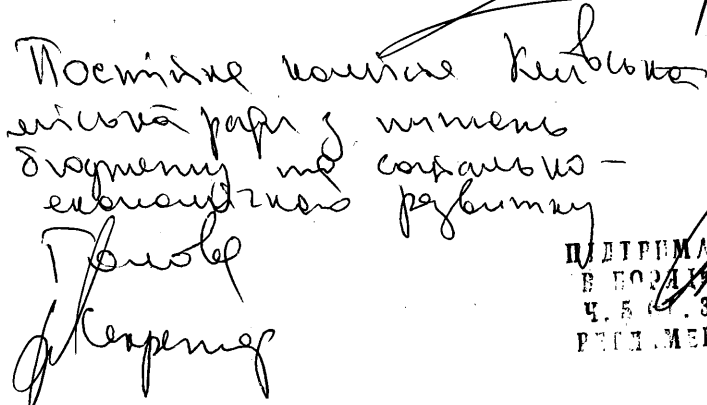 Постійна комісія Київська
міська ради з питань
бюджету та соціально-
економічного розвитку
Голова
Секретар
ПІДТРИМА
В ПОРЯ
Ч. 5
РЕГЛАМЕ